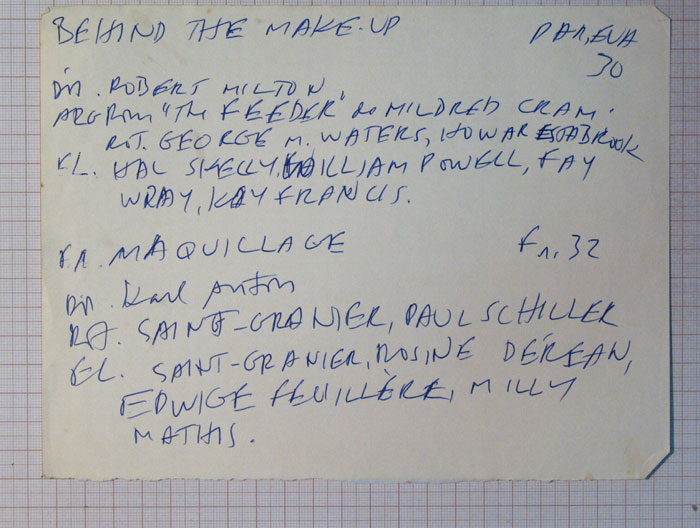 BEHIND THE MAKE-UP PAR, EUA
30
DIR. ROBERT MILTON,
ARGROM "THE FEEDER" DO MILDRED CRAM.
ROT. GEORGE M. WATERS, HOWAR ESTABROOK
EL. HAL SKELLY, WILLIAM POWELL, FAY
WRAY, KAY FRANCIS.
FR. MAQUILLAGE Fr. 32
DIR. Karl Anton
ROT. SAINT-GRANIER, PAUL SCHILLER
EL. SAINT-GRANIER, ROSINE DÉREAN,
EDWIGE FEUILLÈRE, MILLY
MATHIS.